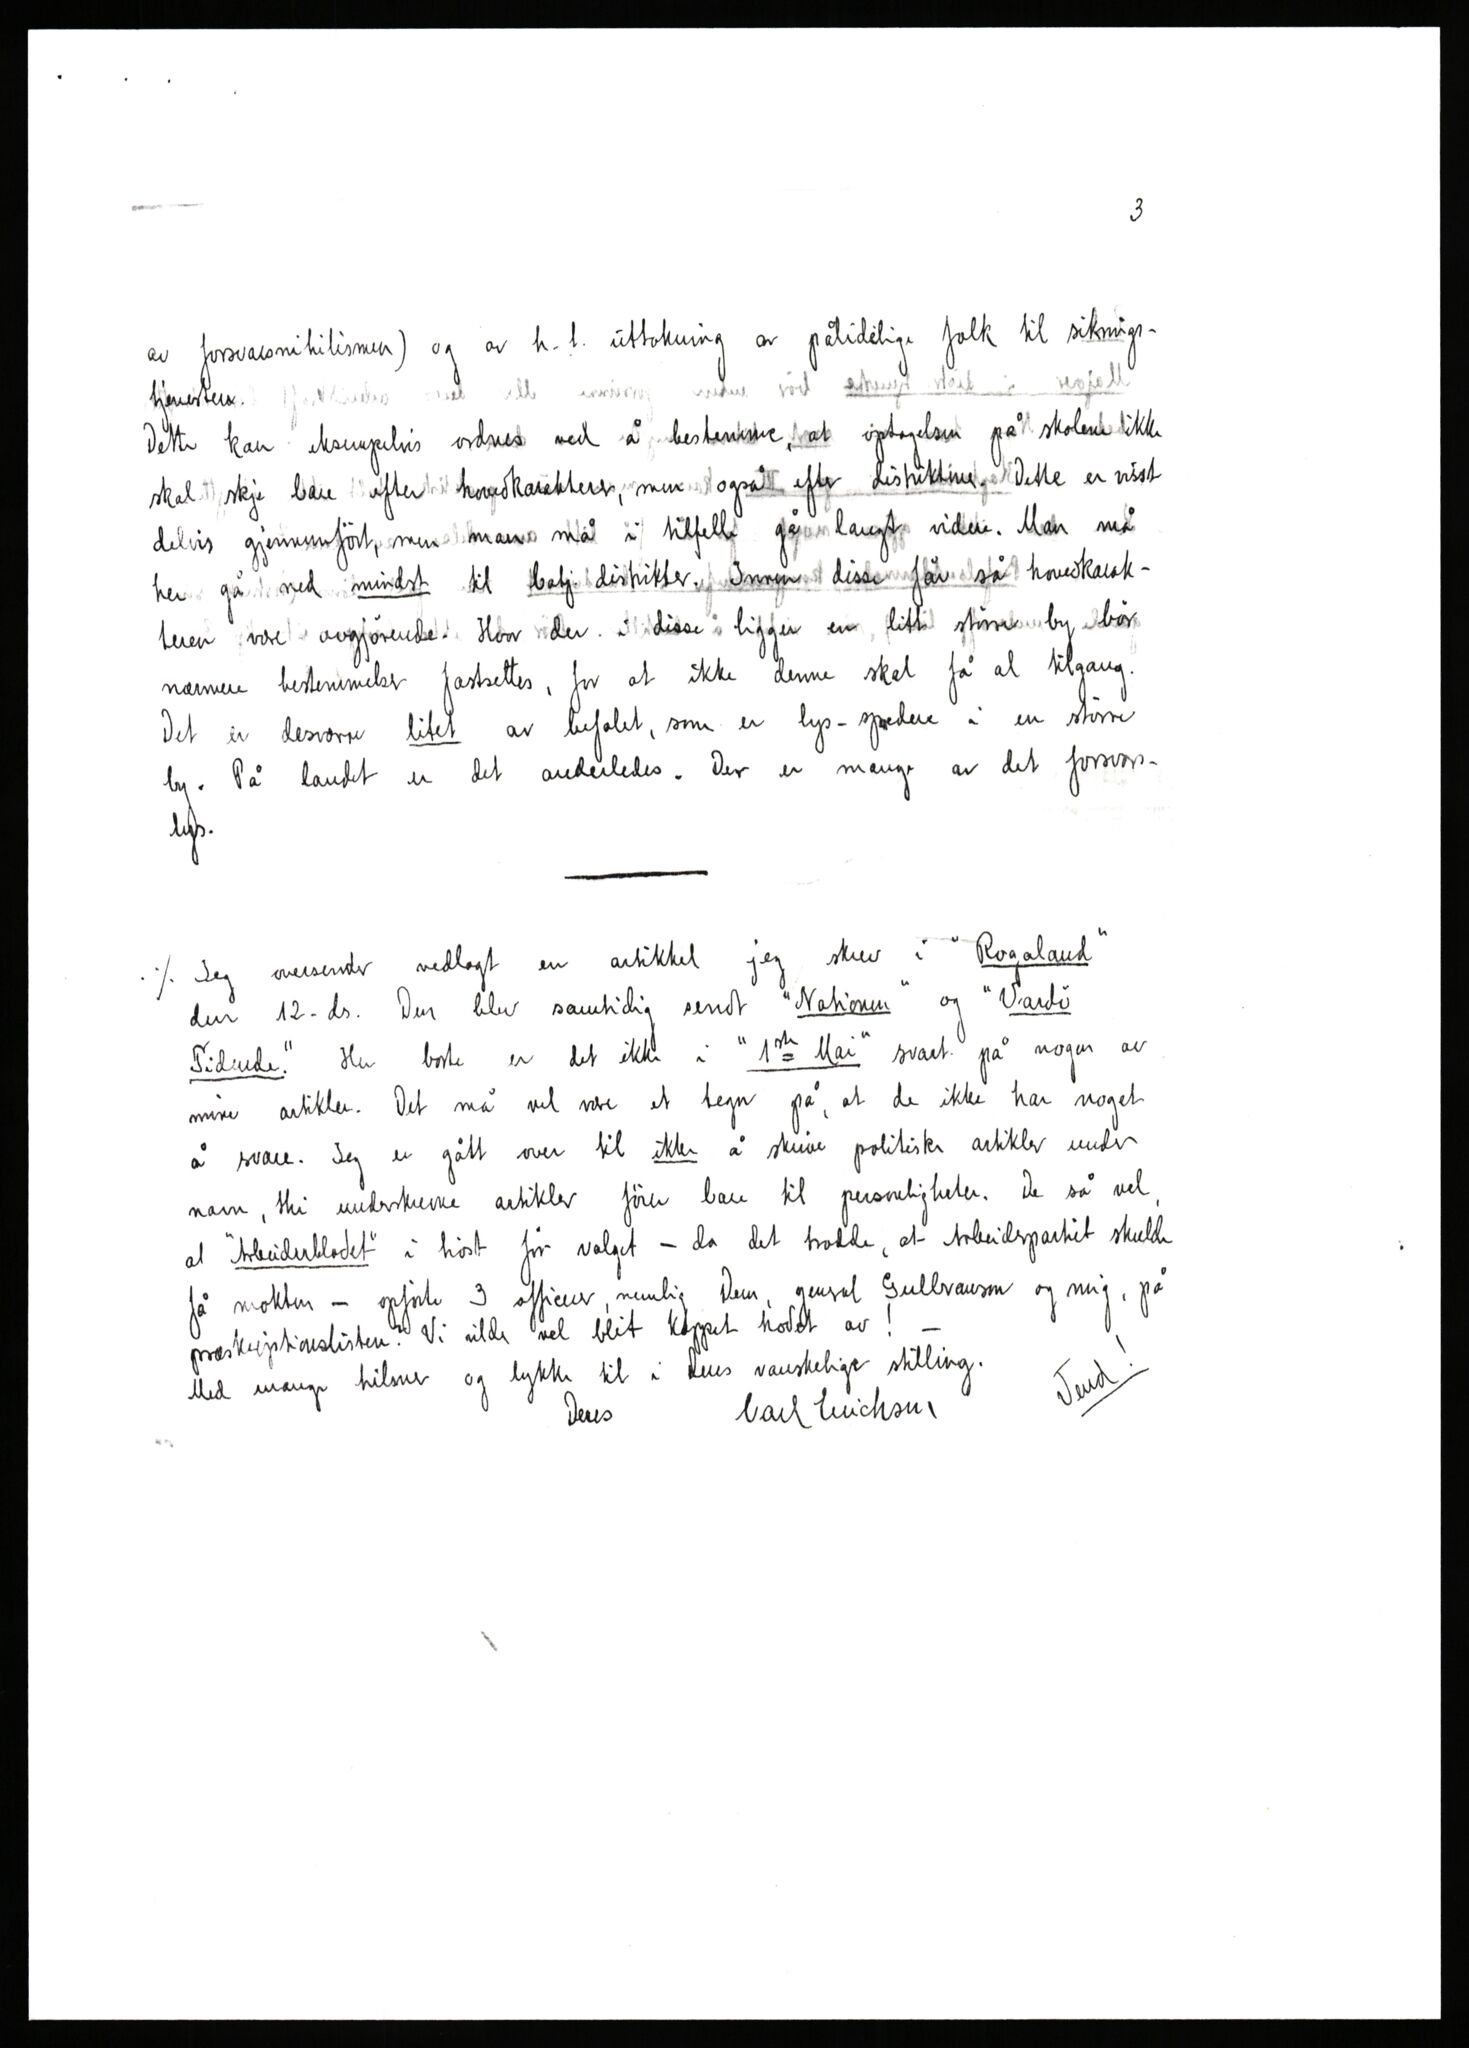 3
av forsvarsnihilismen) og av h.t. uttakning av pålidelige folk til sikrings-
tjenesten.
Dette kan eksempelvis ordnes ved å bestemme, at optagelsen på skolene ikke
skal skje bare efter hovedkarakterer, men også efter distriktene. Dette er visst
delvis gjennemført, men man må i tilfelle gå langt videre. Man må
her gå ned mindst til batj. distrikter. Innen disse får så hovedkarak-
teren være avgjørende. Hvor der i disse ligger en litt større by bør
nærmere bestemmelser fastsettes, for at ikke denne skal få al tilgang.
Det er desværre litet av befalet, som er lys-spredere i en større
by. På landet er det anderledes. Der er mange av det forsvars-
lys.
./. Jeg oversender vedlagt en artikkel jeg skrev i "Rogaland"
den 12-ds. Den blev samtidig sendt "Nationen" og "Vardö
Tidende." Her borte er det ikke i "1ste Mai" svart på nogen av
mine artikler. Det må vel være et tegn på, at de ikke har noget
å svare. Jeg er gått over til ikke å skrive politiske artikler under
navn, thi underskrevne artikler fører bare til personligheter. De så vel,
at "Arbeiderbladet" i høst før valget — da det trodde, at Arbeiderpartiet skulde
få makten — opførte 3 officerer, nemlig Dem, general Gulbranson og mig, på
proskripsjonslisten? Vi vilde vel blit kappet hodet av! —
Med mange hilsner og lykke til i Deres vanskelige stilling.
Deres Carl Erichsen
Vend!